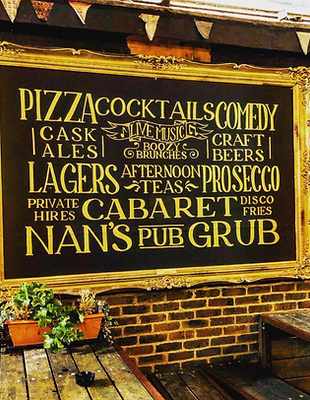 PIZZA COCKTAILS COMEDY
CASK ALES LIVE MUSIC BOOZY BRUNCHES CRAFT BEERS
LAGERS AFTERNOON TEAS PROSECCO
PRIVATE HIRES CABARET DISCO FRIES
NAN'S PUB GRUB